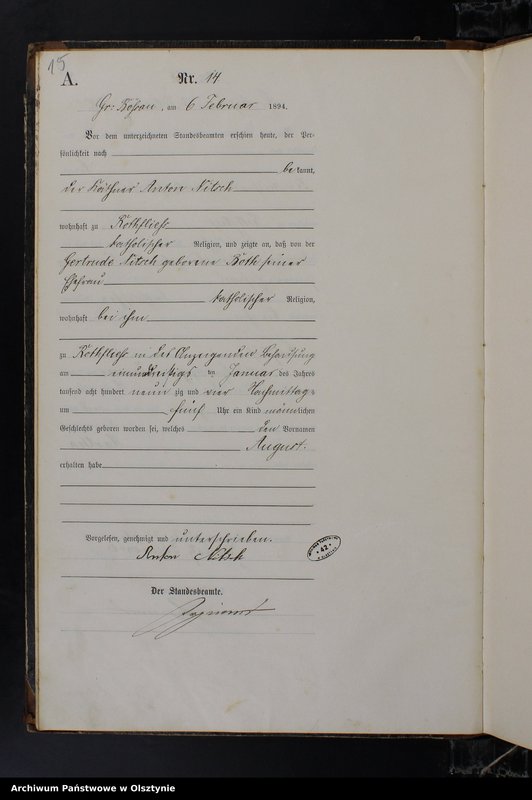 15
A.
Nr. 14
Gr: Bößau, am 6 Februar 1894.
Vor dem unterzeichneten Standesbeamten erschien heute, der Per-
sönlichkeit nach
bekannt,
der Käthner Anton Nitsch
wohnhaft zu Rothfließ
katholischer Religion, und zeigte an, daß von der
Gertrude Nitsch geborene Both seiner
Ehefrau
katholischer Religion,
wohnhaft bei ihm
zu Rothfließ in des Anzeigenden Behausung
am einunddreißigsten Januar des Jahres
tausend acht hundert neunzig und vier Nachmittags
um fünf Uhr ein Kind männlichen
Geschlechts geboren worden sei, welches den Vornamen
August.
erhalten habe
Vorgelesen, genehmigt und unterschrieben.
Anton Nitsch
42
Der Standesbeamte.
Archiwum Państwowe w Olsztynie